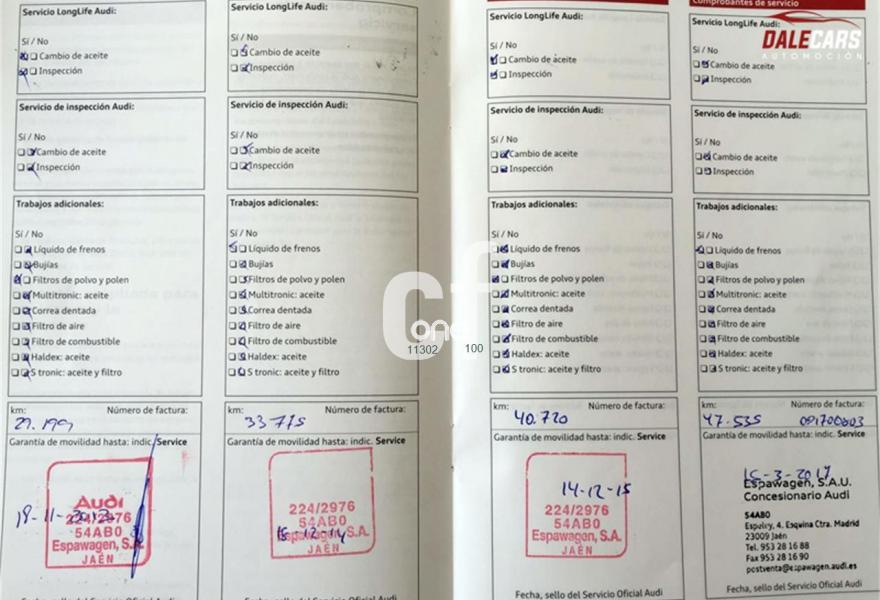 Servicio LongLife Audi:
Sí / No
Cambio de aceite
Inspección
Servicio de inspección Audi:
Sí / No
Cambio de aceite
Inspección
Trabajos adicionales:
Sí / No
Líquido de frenos
Bujías
Filtros de polvo y polen
Multitronic: aceite
Correa dentada
Filtro de aire
Filtro de combustible
Haldex: aceite
S tronic: aceite y filtro
km: Número de factura:
Garantía de movilidad hasta: indic. Service
Audi
224/2976
54AB0
Espawagen, S.A.
JAÉN
Fecha, sello del Servicio Oficial Audi
Servicio LongLife Audi:
Sí / No
Cambio de aceite
Inspección
Servicio de inspección Audi:
Sí / No
Cambio de aceite
Inspección
Trabajos adicionales:
Sí / No
Líquido de frenos
Bujías
Filtros de polvo y polen
Multitronic: aceite
Correa dentada
Filtro de aire
Filtro de combustible
Haldex: aceite
S tronic: aceite y filtro
km: Número de factura:
33.775
Garantía de movilidad hasta: indic. Service
224/2976
54AB0
Espawagen, S.A.
JAÉN
Fecha, sello del Servicio Oficial Audi
Servicio LongLife Audi:
Sí / No
Cambio de aceite
Inspección
Servicio de inspección Audi:
Sí / No
Cambio de aceite
Inspección
Trabajos adicionales:
Sí / No
Líquido de frenos
Bujías
Filtros de polvo y polen
Multitronic: aceite
Correa dentada
Filtro de aire
Filtro de combustible
Haldex: aceite
S tronic: aceite y filtro
km: Número de factura:
40.720
Garantía de movilidad hasta: indic. Service
14-12-15
224/2976
54AB0
Espawagen, S.A.
JAÉN
Fecha, sello del Servicio Oficial Audi
Comprobantes de servicio
Servicio LongLife Audi:
Sí / No
Cambio de aceite
Inspección
Servicio de inspección Audi:
Sí / No
Cambio de aceite
Inspección
Trabajos adicionales:
Sí / No
Líquido de frenos
Bujías
Filtros de polvo y polen
Multitronic: aceite
Correa dentada
Filtro de aire
Filtro de combustible
Haldex: aceite
S tronic: aceite y filtro
km: Número de factura:
47.535 091700603
Garantía de movilidad hasta: indic. Service
15-3-2017
Espawagen, S.A.U.
Concesionario Audi
54AB0
Espelry, 4. Esquina Ctra. Madrid
23009 Jaén
Tel. 953 28 16 88
Fax 953 28 16 90
postventa@espawagen.audi.es
Fecha, sello del Servicio Oficial Audi
DALECARS
AUTOMOCIÓN
cf
one
11302 100